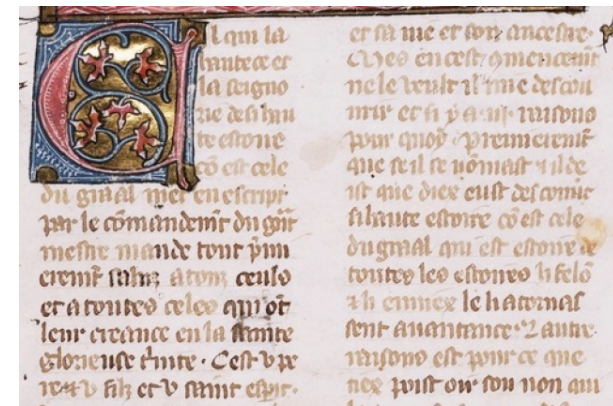 Il qui la
hautece et
la seigno
rie de si hau
te estoire
cō est cele
du graal met en escript
par le cōmandemt du gnt
mestre mande tout p̄mi
eremt saluz a touz ceuls
et a toutes celes qui ōt
leur creance en la sainte
glorieuse t̄nite. Cest v pe
re & v filz et v saint esp̄it.
et sa uie et son ancestre.
Mes en cest cōmencemt
ne le veult il mie descou
urir et si y a .iij. raisons
pour quoy. Premieremt
que se il se nōmast & il de
ist que diex eust descouuert
si haute estoire cō est cele
du graal qui est estoire de
toutes les estoires li felō
& li enuieꝰ le li atornas
sent a uantance. & lautre
raisons est pour ce que
tiex poist oir son non qui